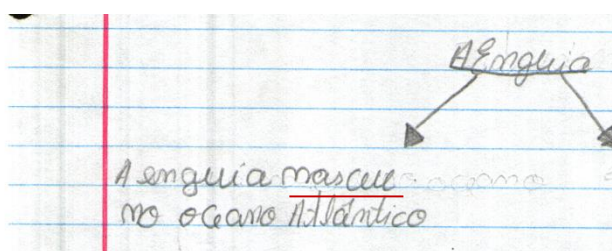 A Enguia
A enguia nasceu
no oceano Atlântico